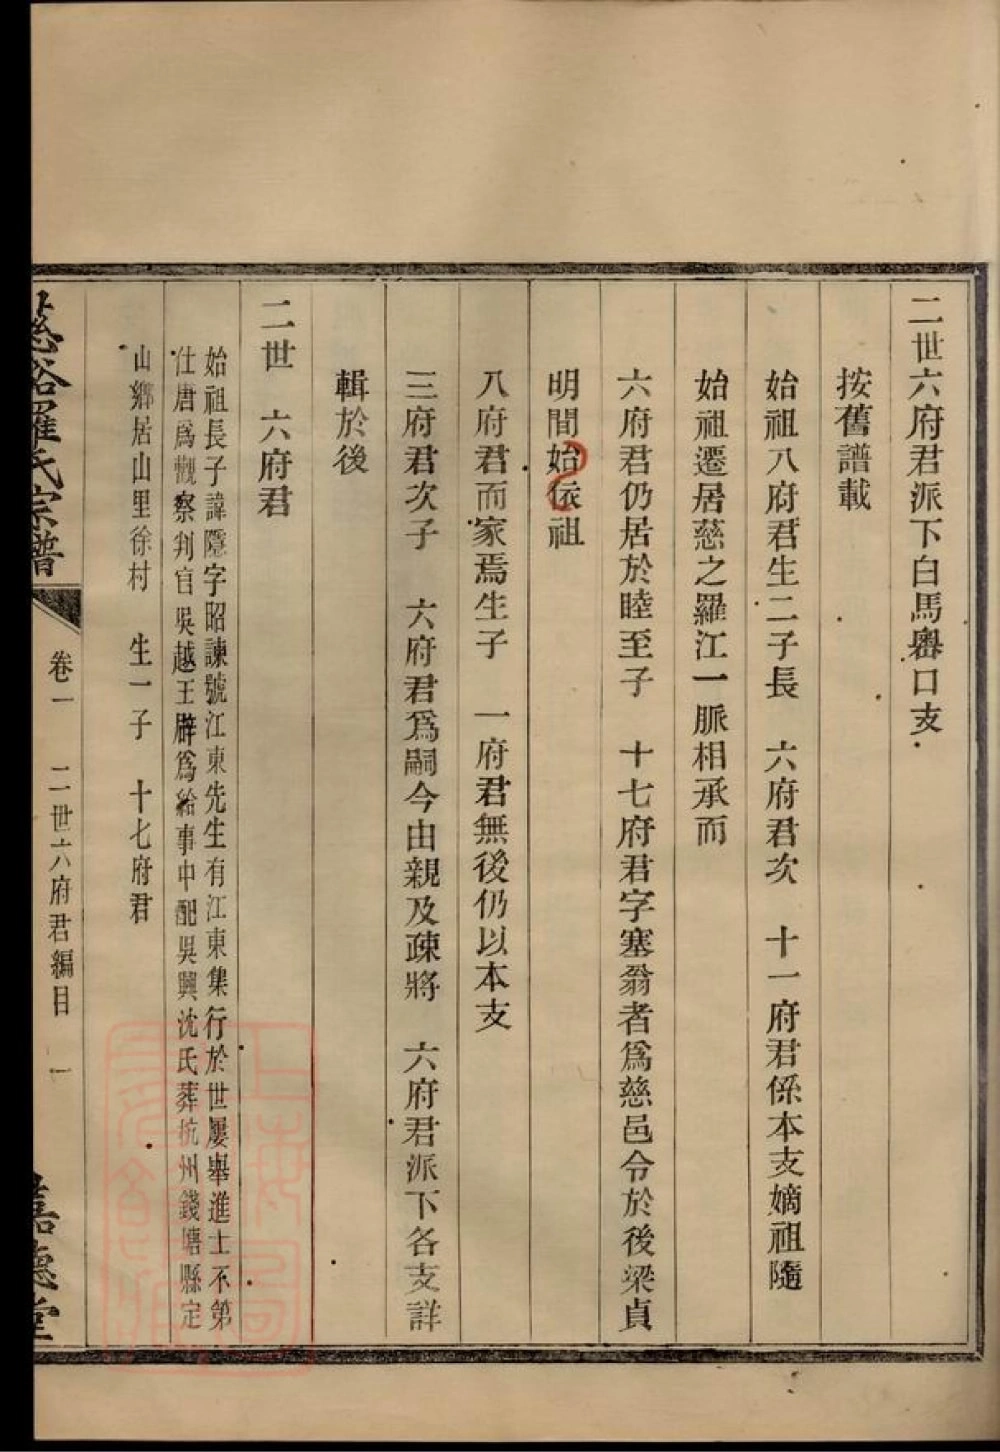 二世六府君派下白馬嶴口支
按舊譜載
始祖八府君生二子長　六府君次　十一府君係本支嫡祖隨
始祖遷居慈之羅江一脈相承而
六府君仍居於睦至子　十七府君字塞翁者爲慈邑令於後梁貞
明間始依祖
八府君而家焉生子　一府君無後仍以本支
三府君次子　六府君爲嗣今由親及疎將　六府君派下各支詳
輯於後
二世　六府君
始祖長子諱隱字昭諫號江東先生有江東集行於世屢舉進士不第
仕唐爲觀察判官吳越王辟爲給事中配吳興沈氏葬杭州錢塘縣定
山鄉居山里徐村　生一子　十七府君
慈谿羅氏宗譜
卷一　二世六府君編目　一
嘉德堂